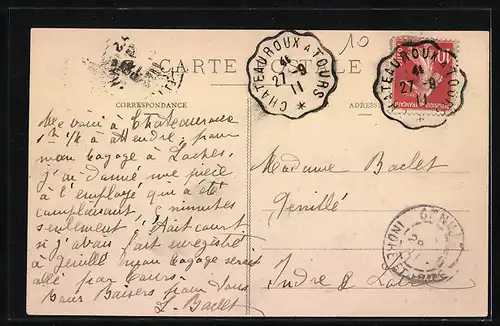 10
CHATEAUROUX A TOURS
27 - 9
11
CHATEAUROUX A TOURS
27 - 9
CARTE POSTALE
CORRESPONDANCE
ADRESSE
Me voici à Chateauroux
1h 1/2 à attendre, pour
mon bagage à Loches,
j'ai donné une pièce
à l'employé qui a été
complaisant, 5 minutes
seulement c'était court
si j'avais fait enregistré
à Genillé mon bagage serait
allé par Tours.
Bons Baisers pour vous
L. Baclet
Madame Baclet
Genillé
Indre & Loire